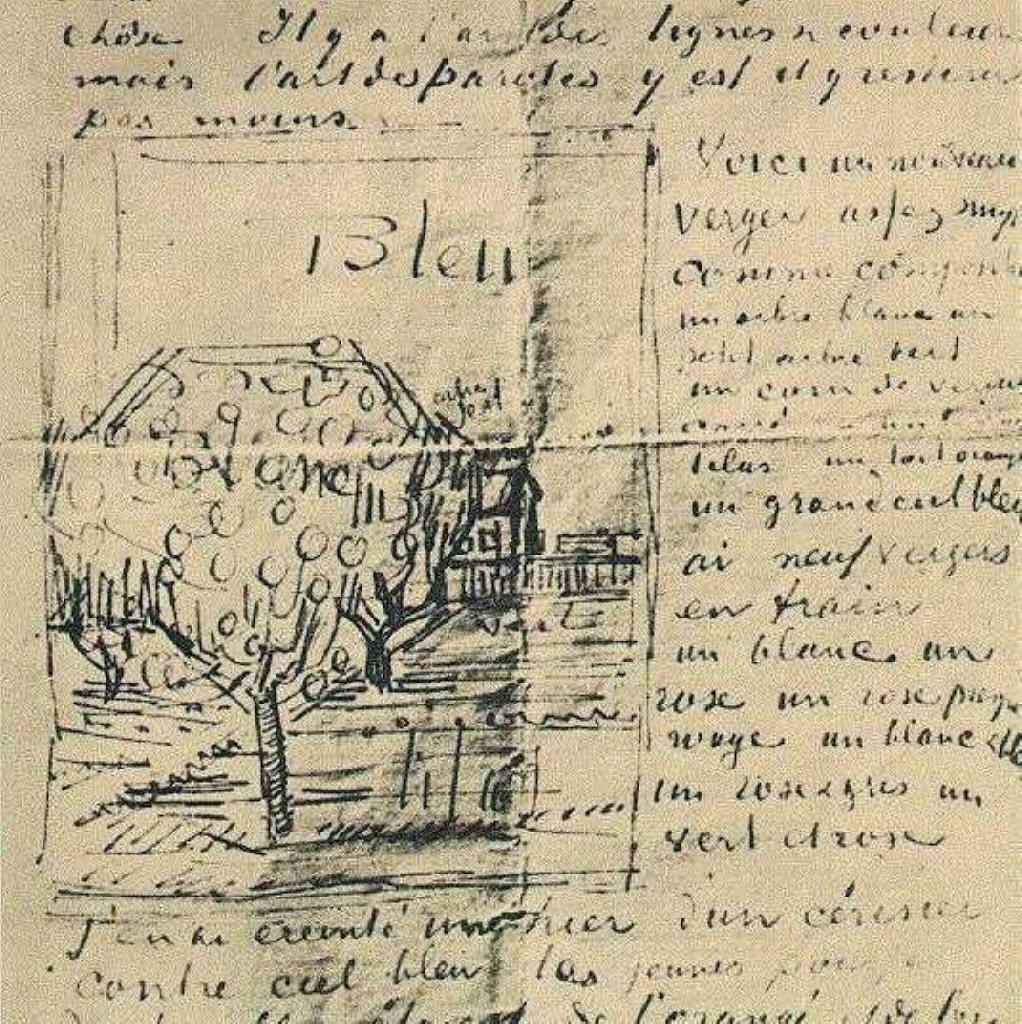 chose Il y a l'art des lignes et couleurs
mais l'art des paroles y est et y restera
pas moins.
Bleu
arbre
vert
blanc
verte
Voici un nouveau
verger assez
comme
un arbre blanc un
petit arbre vert
un coin de
carré un
lilas un toit orangé
un grand ciel bleu
ai neuf vergers
en train
un blanc un
rose un rose
rouge un blanc
un rose et gris un
vert et rose
J'en ai éreinté un hier d'un cérisier
contre ciel bleu les jeunes
de l'orangé